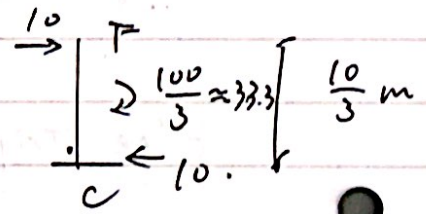 10 F
100/3 ≈ 33.3 10/3 m
10.
C